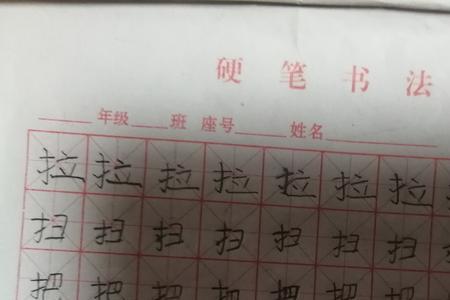 硬笔书法
年级 班 座号 姓名
拉拉拉拉拉拉拉
扫扫扫扫扫扫扫
把把把把把把把